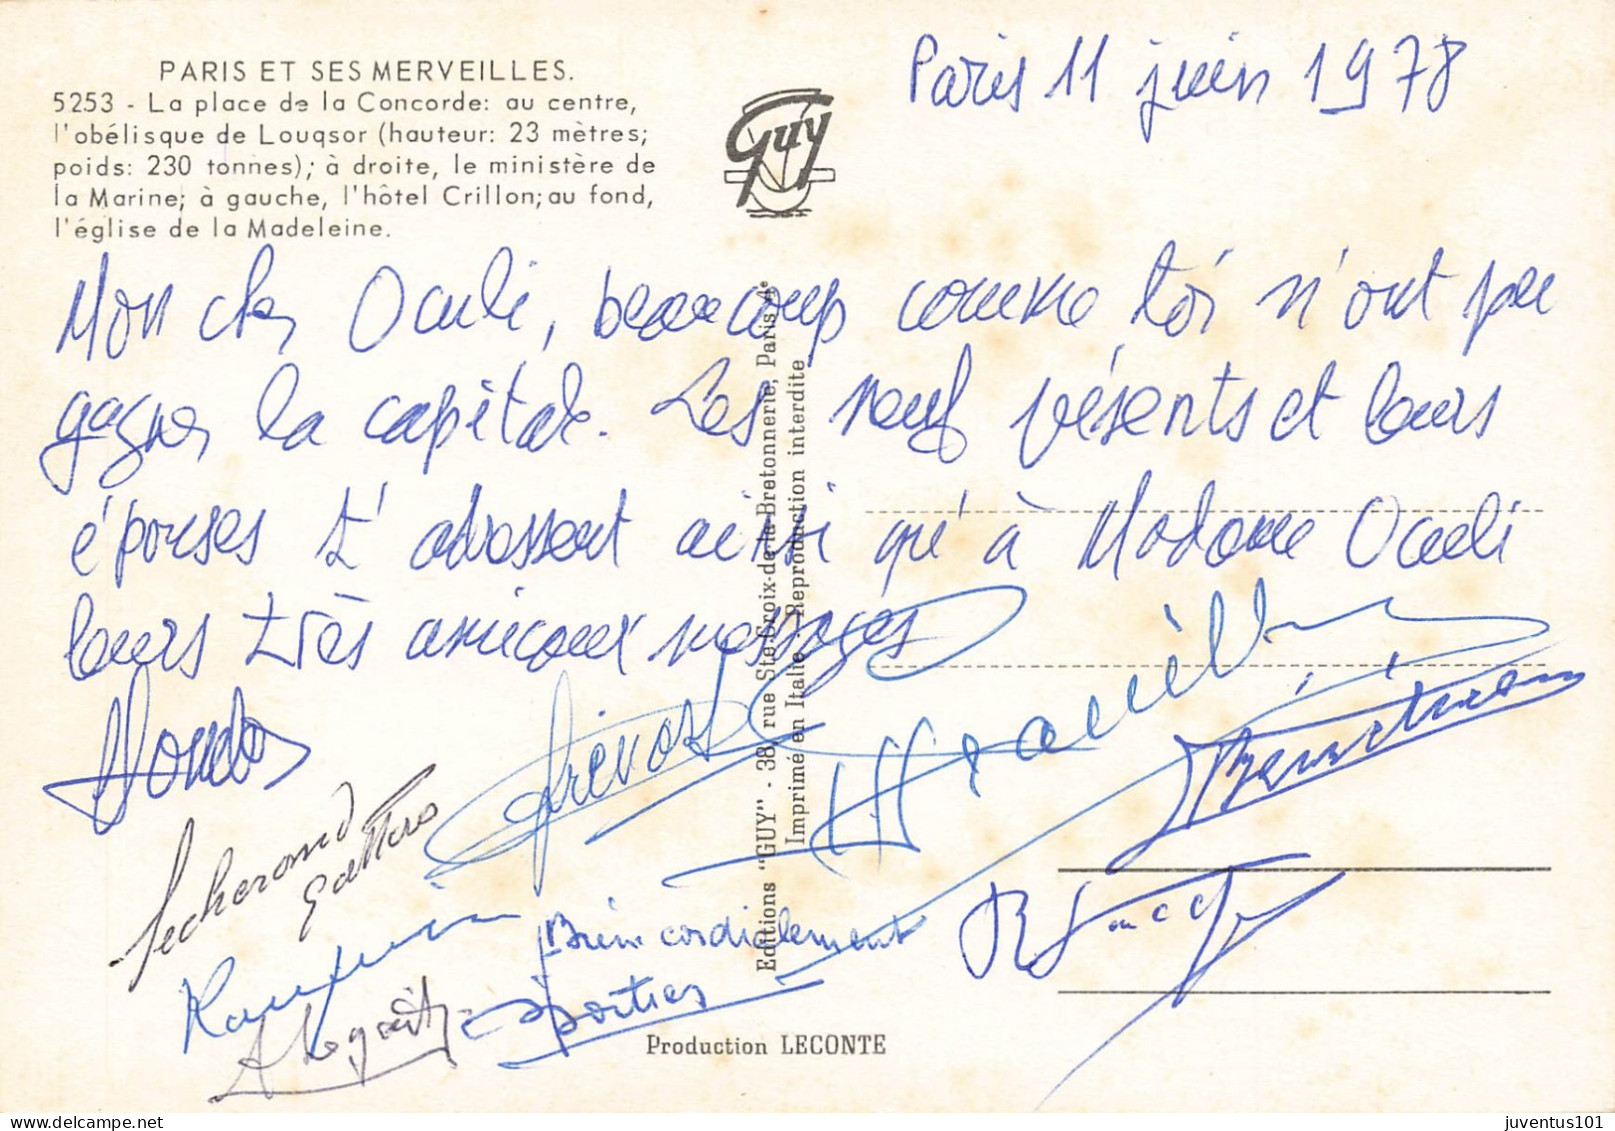 PARIS ET SES MERVEILLES.
5253 - La place de la Concorde: au centre,
l'obélisque de Louqsor (hauteur: 23 mètres;
poids: 230 tonnes); à droite, le ministère de
la Marine; à gauche, l'hôtel Crillon; au fond,
l'église de la Madeleine.
Guy
Paris 11 juin 1978
Mon cher Oculi, beaucoup comme toi n'ont pu
gagner la capitale. Les neuf présents et leurs
épouses t'adressent ainsi qu'à Madame Oculi
leurs très amicaux messages
Prévost
Secherand
Bien cordialement
Portier
Editions "GUY" - 38, rue Ste-Croix-de-la-Bretonnerie, Paris 4e
Imprimé en Italie - Reproduction interdite
Production LECONTE
juventus101